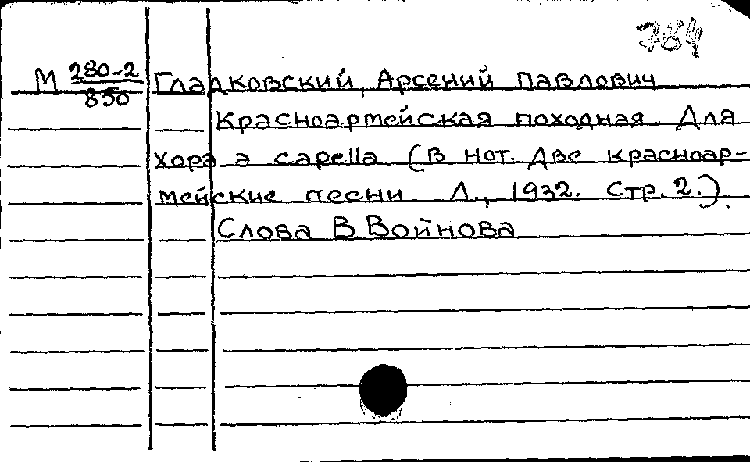 784
М 280-2/850 Гладковский, Арсений Павлович
Красноармейская походная. Для
хора a capella (В нот. Две красноар-
мейские песни Л., 1932. Стр. 2.).
Слова В Войнова